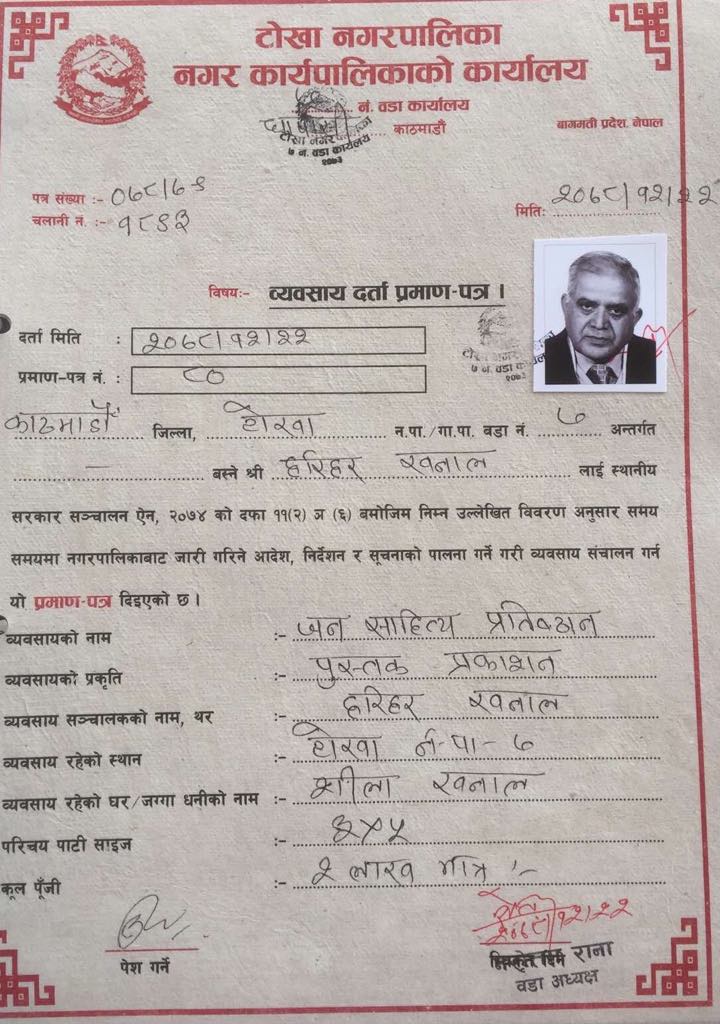 टोखा नगरपालिका
नगर कार्यपालिकाको कार्यालय
नं. वडा कार्यालय
काठमाडौँ
बागमती प्रदेश, नेपाल
टोखा नगरपालिका
७ नं. वडा कार्यालय
२०७३
पत्र संख्या :- ०७८/७९
मितिः २०७८/१२/२२
चलानी नं. :- १८९३
विषयः- व्यवसाय दर्ता प्रमाण-पत्र ।
दर्ता मिति : २०७८/१२/२२
प्रमाण-पत्र नं. : ८०
७ नं. वडा कार्यालय
२०७३
काठमाडौँ जिल्ला, टोखा न.पा./गा.पा. वडा नं. ७ अन्तर्गत
— बस्ने श्री हरिहर खनाल लाई स्थानीय
सरकार सञ्चालन ऐन, २०७४ को दफा ११(२) ञ (६) बमोजिम निम्न उल्लेखित विवरण अनुसार समय
समयमा नगरपालिकाबाट जारी गरिने आदेश, निर्देशन र सूचनाको पालना गर्ने गरी व्यवसाय संचालन गर्न
यो प्रमाण-पत्र दिइएको छ ।
व्यवसायको नाम :- जन साहित्य प्रतिष्ठान
व्यवसायको प्रकृति :- पुस्तक प्रकाशन
व्यवसाय सञ्चालकको नाम, थर :- हरिहर खनाल
व्यवसाय रहेको स्थान :- टोखा न.पा-७
व्यवसाय रहेको घर/जग्गा धनीको नाम :- शीला खनाल
परिचय पाटी साइज :- ३×५
कूल पूँजी :- २ लाख मात्र ।-
२०७८/१२/२२
पेश गर्ने
राना
वडा अध्यक्ष